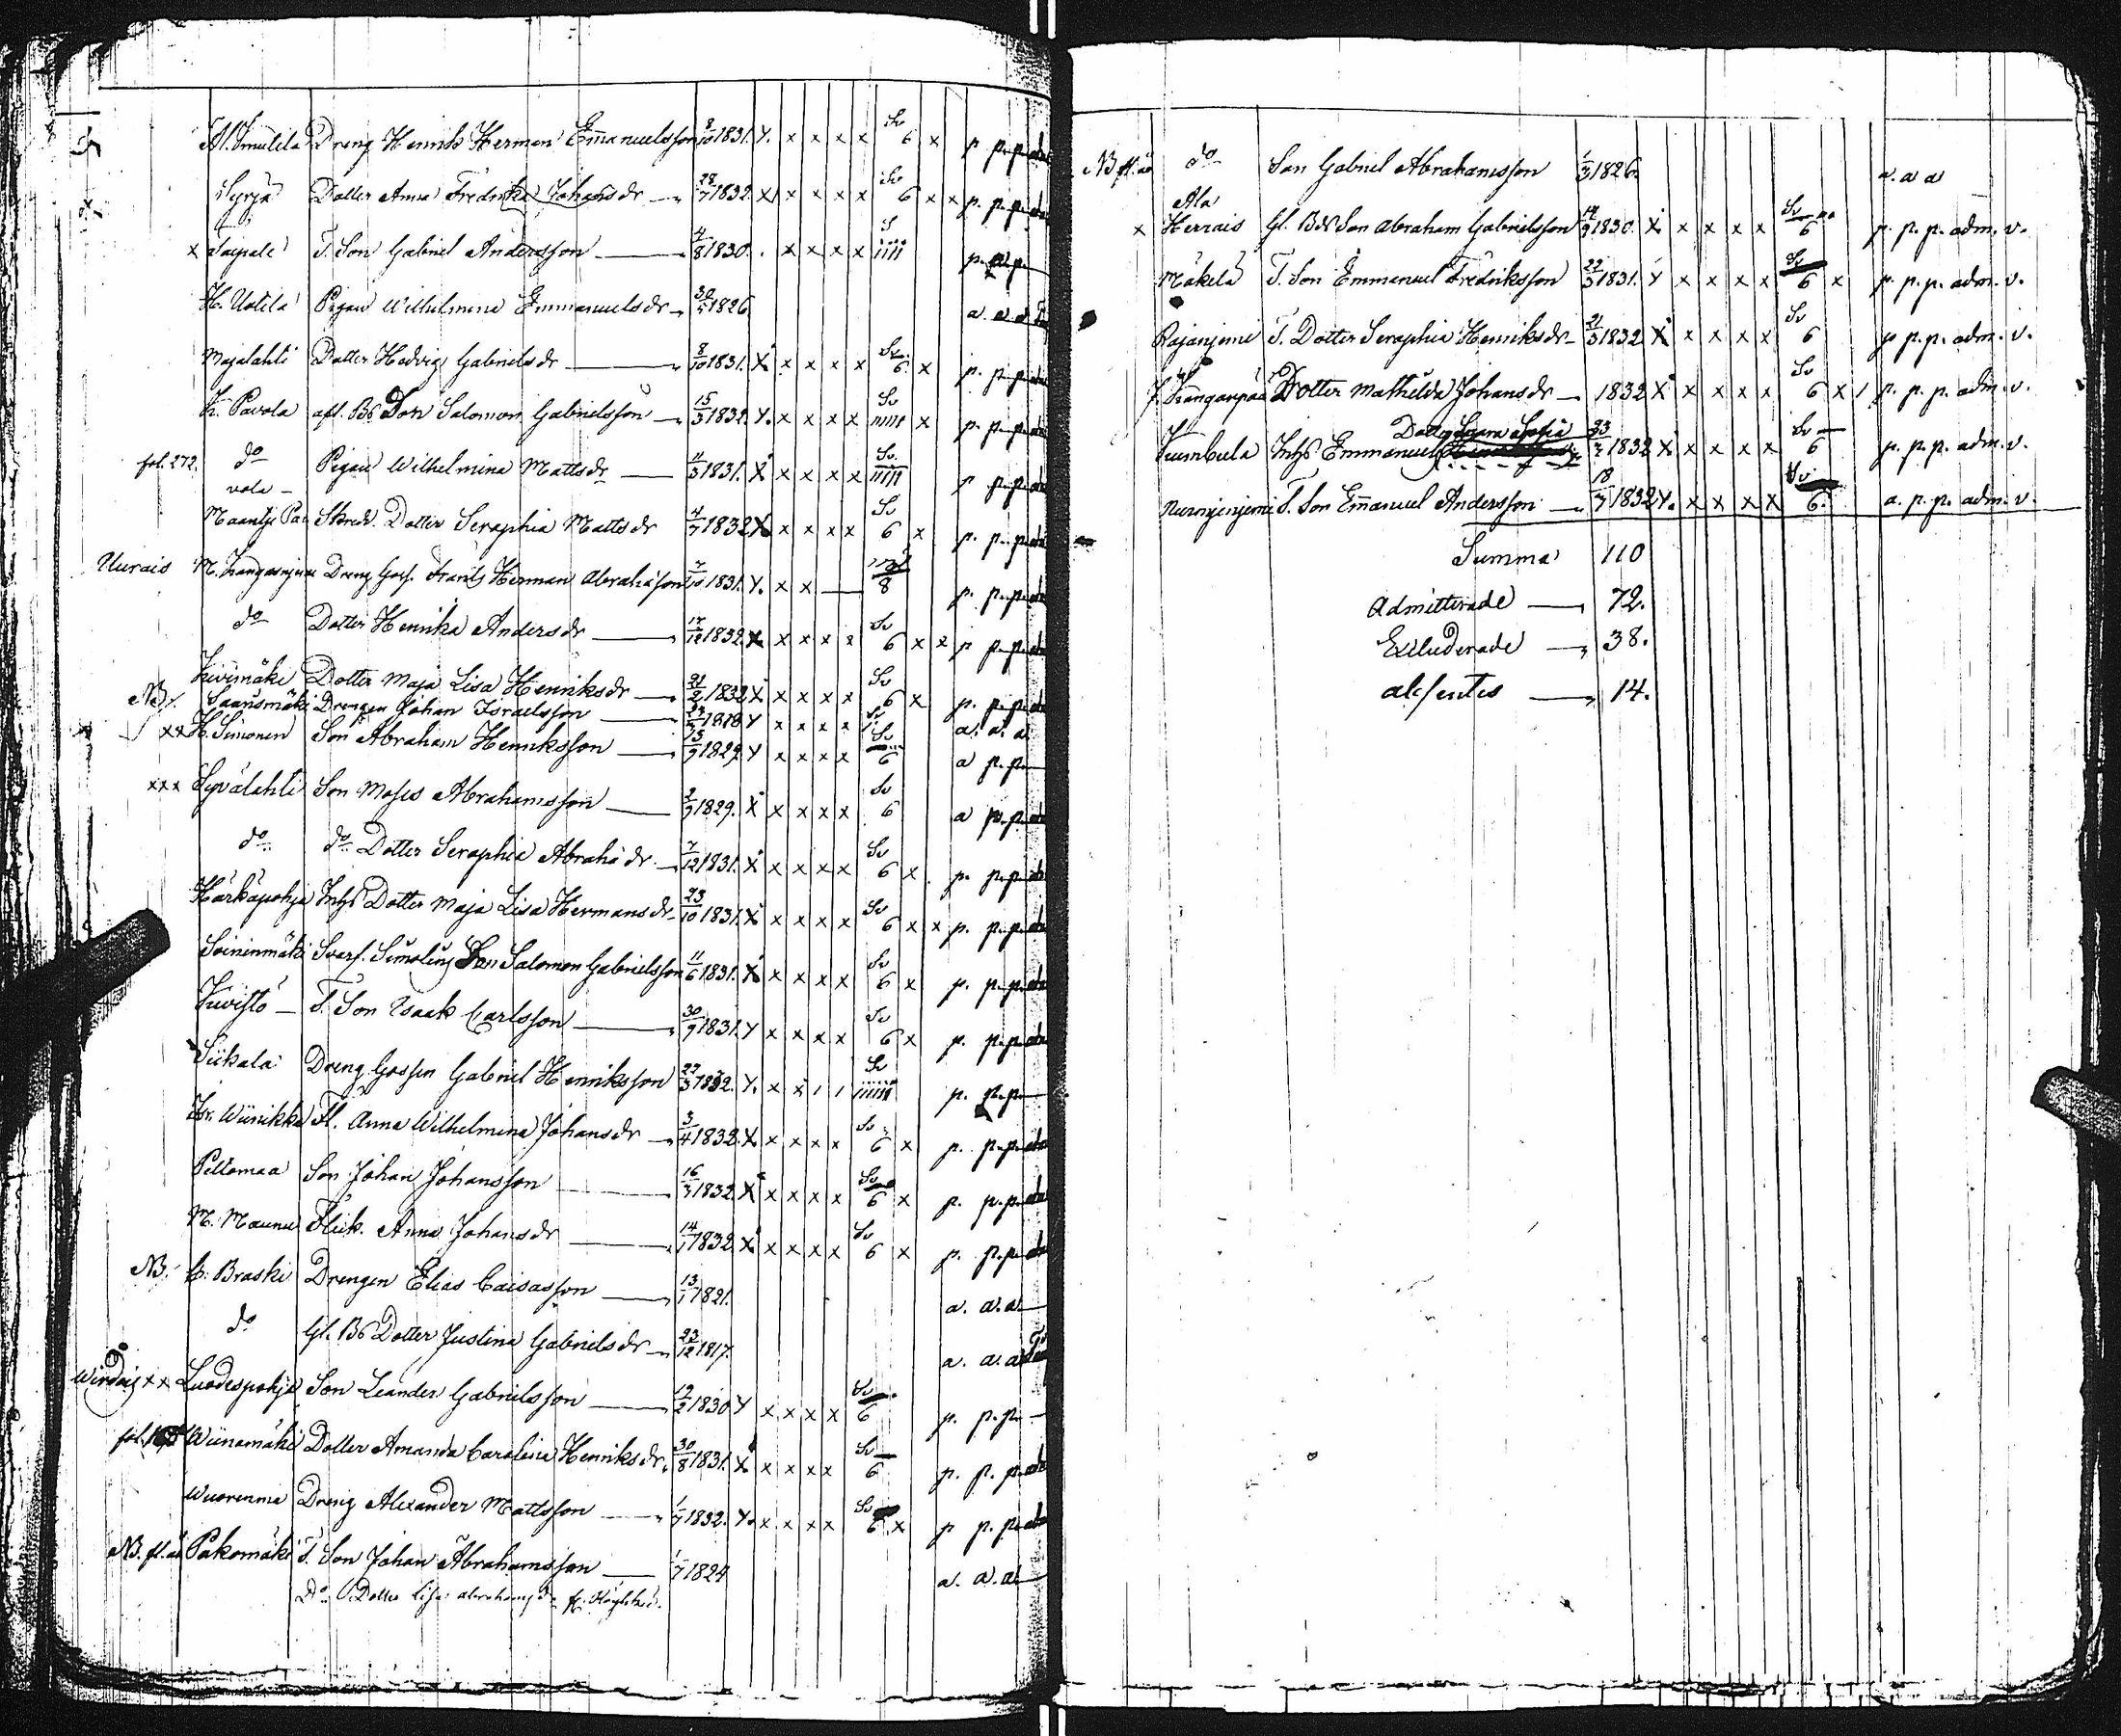 Al. Smulila Dreng Henrik Herman Emanuelsson 8/10 1831. Y. x x x x Sv 6 x p p. p.
Syrjä Dotter Anna Fredrika Johansdr 28/7 1832. x x x x x Sv 6 x x p. p. p.
x Taipale T. Son Gabriel Andersson 4/8 1830. . x x x x S p. p.
H. Uotila Pigan Wilhelmina Emmanuelsdr 30/5 1826 a. a. a.
Majalahti Dotter Hedvig Gabrielsdr 8/10 1831. X x x x x Sv. 6. x p. p. p.
K. Pavola afl. Bs Son Salomon Gabrielsson 15/3 1832. Y. x x x x Sv x p. p. p.
fol. 272. do Pigan Wilhelmina Mattsdr 11/3 1831. X x x x x Sv. p p. p.
Maantje Pavola Skredd. Dotter Seraphia Matts dr 4/7 1832 X x x x x Sv 6 x p. p. p.
Kurais M. Kangasniemi Dreng Goss. Frants Herman Abrahãsson 7/10 1831. Y. x x 8 p. p. p.
do Dotter Henrika Andersdr 17/12 1832. X x x x x Sv 6 x x p p. p.
Kivimäki Dotter Maja Lisa Henriksdr 21/2 1832 X x x x x Sv 6 x p. p. p.
NB. Saansmäki Drengen Johan Israelsson 1818 Y x x x x Sv a. a. a.
xx H. Simonen Son Abraham Henriksson 15/9 1829. Y x x x x Sv 6 a p. p.
xxx Syvälahti Son Moses Abrahamsson 2/9 1829. X x x x x Sv 6 a p. p.
do do Dotter Seraphia Abrahã dr 7/12 1831. X x x x x Sv 6 x. p. p. p.
Härkäpohja Inhs Dotter Maja Lisa Hermansdr 23/10 1831. X x x x x Sv 6 x x p. p. p.
Soininmäki Svarf. Simelius Son Salomon Gabrielsson 11/6 1831. X x x x x Sv 6 x p. p. p.
Kuvisto T. Son Isaak Carlsson 30/9 1831. Y x x x x Sv 6 x p. p. p.
Siikala Dreng Gossen Gabriel Henriksson 27/3 1832. Y. x x Sv p. p. p
Hr. Wiinikka Fl. Anna Wilhelmina Johansdr 3/4 1832. X x x x x Sv 6 x p. p. p.
Peltomaa Son Johan Johansson 16/3 1832. X x x x x Sv 6 x p. p. p.
M. Maunu Flick. Anna Johansdr 14/1 1832 X x x x x Sv 6 x p. p. p.
NB. C. Braski Drengen Elias Caisasson 13/1 1821. a. a. a.
do Gl. Bs Dotter Justina Gabrielsdr 23/12 1817. a. a. a
Wirdois xx Luodespohja Son Leander Gabrielsson 19/2 1830 Y x x x x Sv 6 p. p. p.
fol. Wiinamäki Dotter Amanda Carolina Henriksdr 30/8 1831. X x x x x Sv 6 p. p. p.
Wuorenma Dreng Alexander Mattsson 1/7 1832. Y. x x x x Sv 6 x p p. p.
NB. fl. Pakomäki T. Son Johan Abrahamsson 1/7 1824 a. a. a.
Do Dotter Lisa Abrahams dr
NB fl. do Son Gabriel Abrahamsson 1/3 1826. a. a a
x Ala Herrais Gl. Bds Son Abraham Gabrielsson 14/9 1830. X x x x x Sv 6 p. p. p. adm. v.
Mäkelä T. Son Emmanuel Fredriksson 22/3 1831. Y x x x x Sv 6 x p. p. p. adm. v.
Rajaniemi T. Dotter Seraphia Henriksdr 21/3 1832 X x x x x Sv 6 p p. p. adm. v.
J. Kangaspää Dotter Mathilda Johansdr 1832 X x x x x Sv 6 x p. p. p. adm. v.
Dotter Sofia
Kumbula Inhs Emmanuel 23/7 1832 X x x x x Sv 6 p. p. p. adm. v.
T. Son Emanuel Andersson 18/7 1832 Y. x x x x Sv 6. a. p. p. adm. v.
Summa 110
Admitterade 72.
Excluderade 38.
absentes 14.